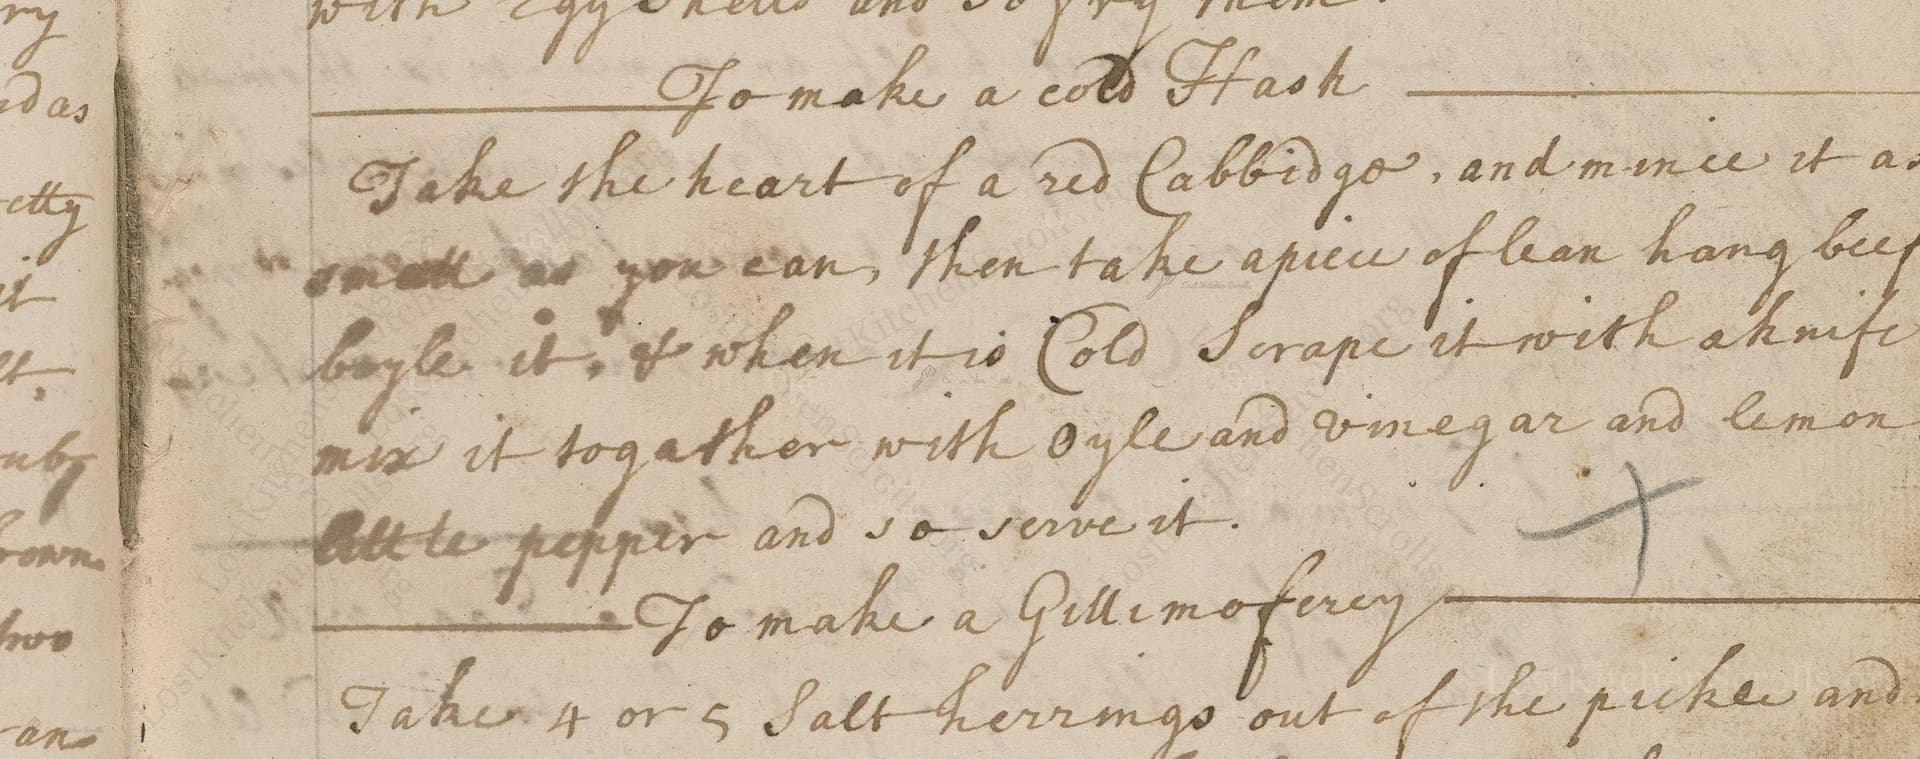 with Eggshells and so fry them.
To make a cold Hash
Take the heart of a red Cabbidge, and mince it as
small as you can, then take a piece of lean hang beef
boyle it, & when it is Cold Scrape it with a knife
mix it togather with Oyle and vinegar and lemon
little pepper and so serve it.
To make a Gillimoferey
Take 4 or 5 Salt herrings out of the pickle and